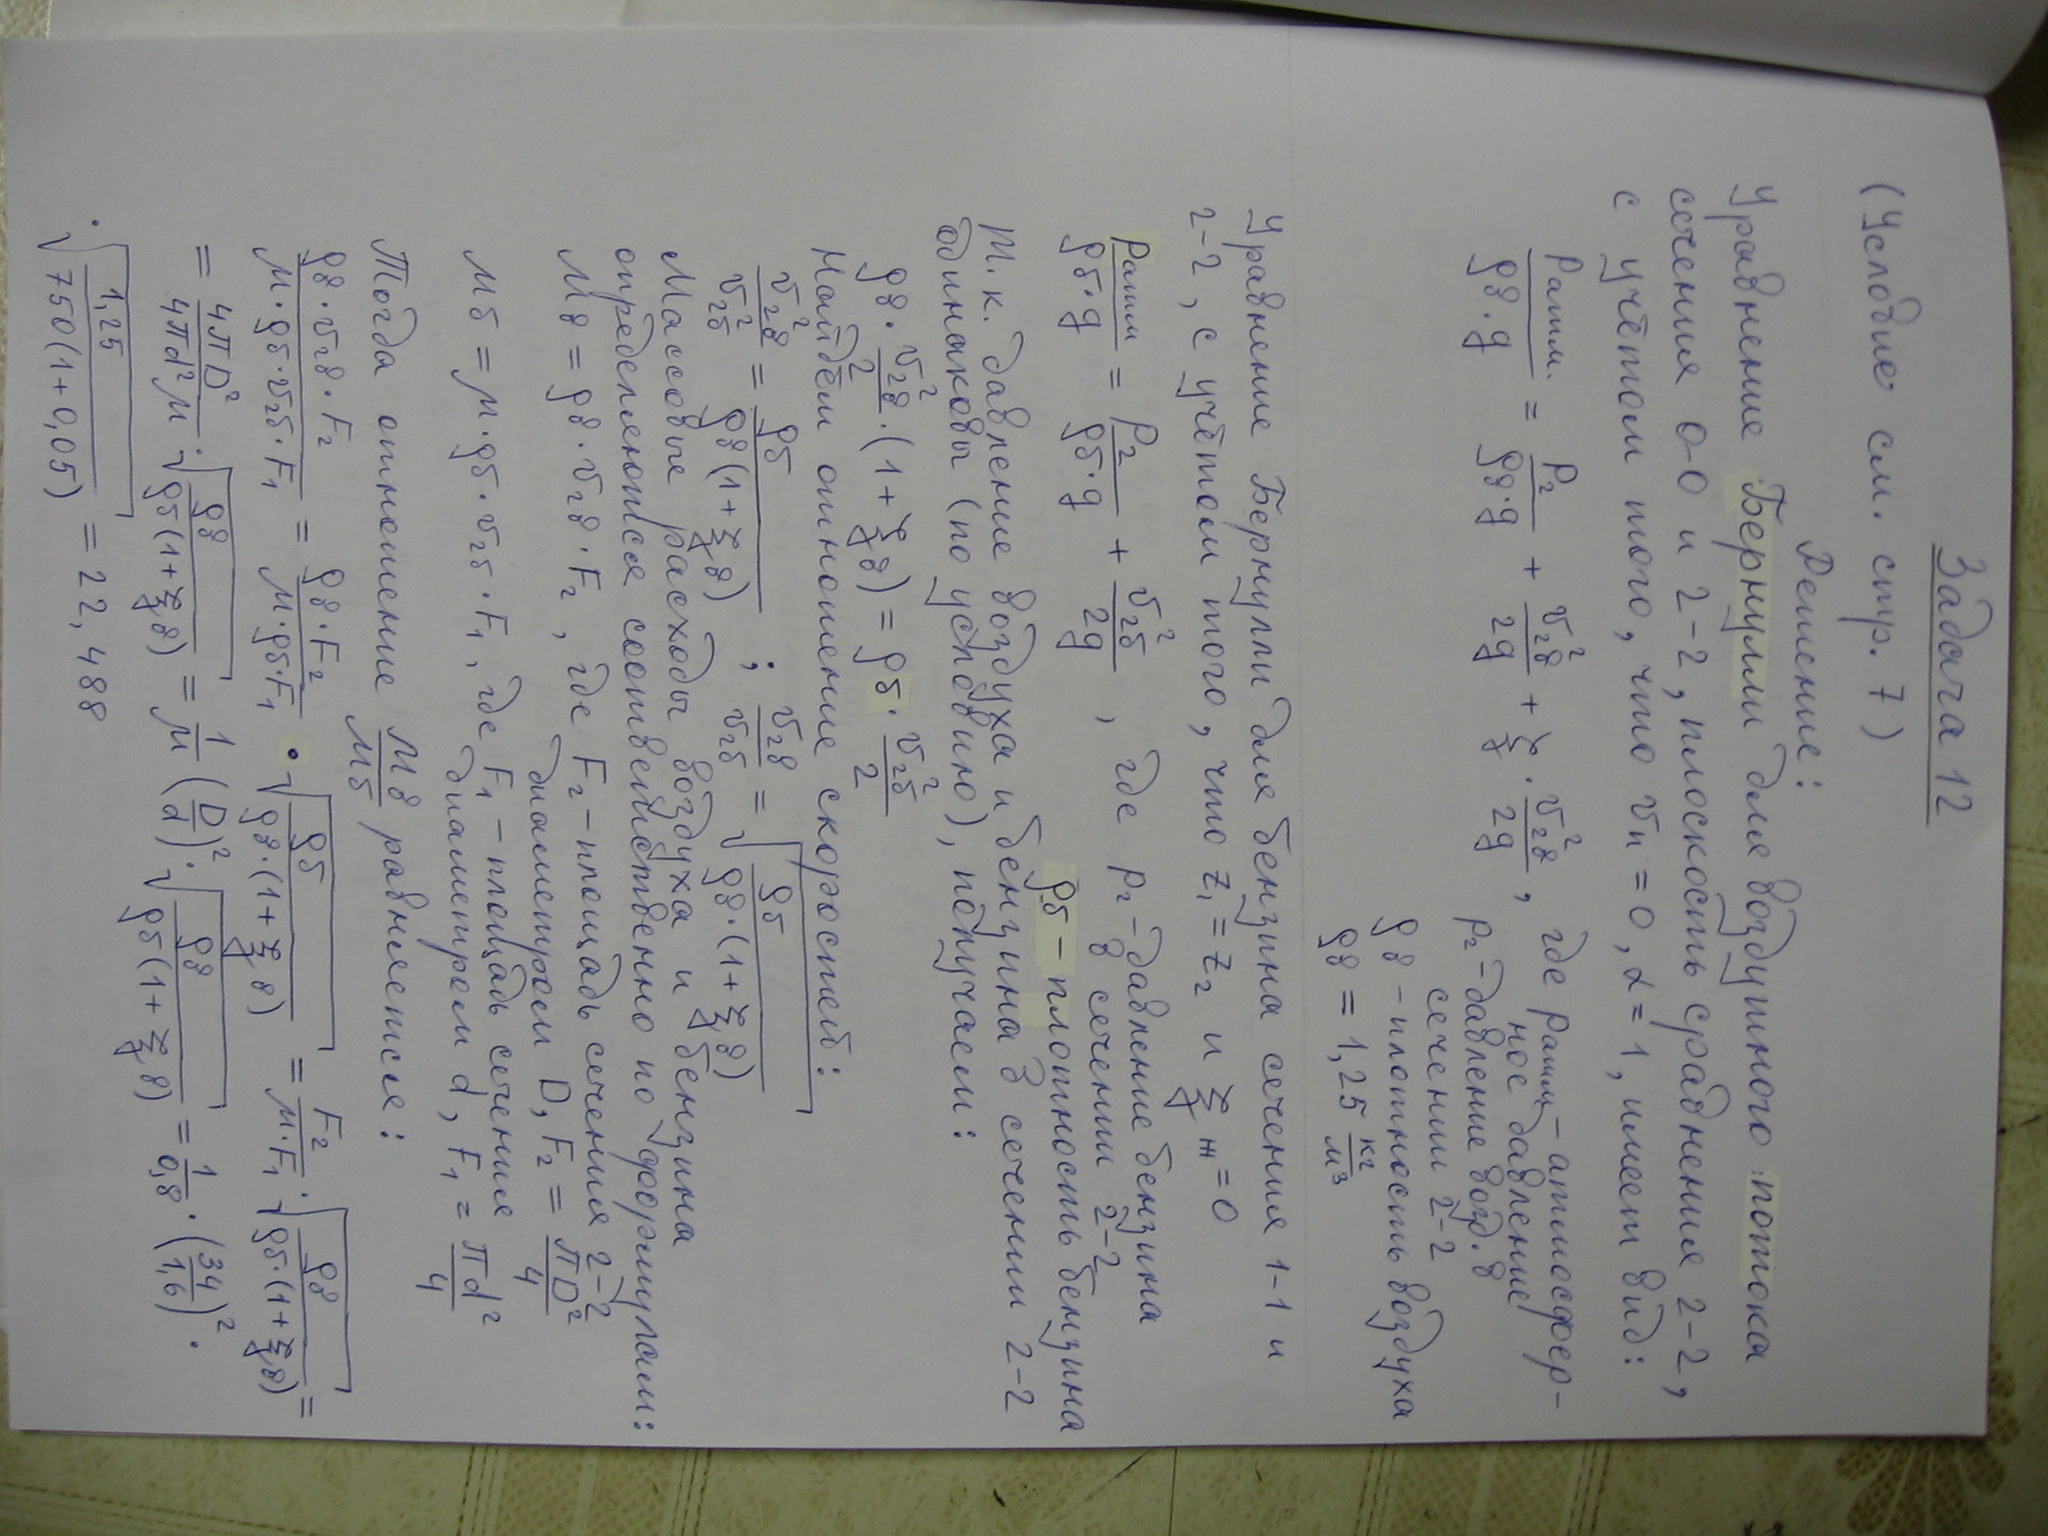 Задача 12
(Условие см. стр. 7)
Решение:
Уравнение Бернулли для воздушного потока
сечения 0-0 и 2-2, плоскость сравнения 2-2,
с учётом того, что vп = 0, α = 1, имеет вид:
Pатм./(ρв·g) = P₂/(ρв·g) + v₂в²/2g + ξ · v₂в²/2g, где Pатм – атмосфер-
ное давление
P₂ – давление возд. в
сечении 2-2
ρв – плотность воздуха
ρв = 1,25 кг/м³
Уравнение Бернулли для бензина сечения 1-1 и
2-2, с учётом того, что z₁ = z₂ и ξж = 0
Pатм/(ρб·g) = P₂/(ρб·g) + v₂б²/2g, где P₂ – давление бензина
в сечении 2-2
ρб – плотность бензина
т.к. давление воздуха и бензина в сечении 2-2
одинаковы (по условию), получаем:
ρв · v₂в²/2 · (1+ξв) = ρб · v₂б²/2
Найдём отношение скоростей:
v₂в²/v₂б² = ρб/(ρв(1+ξв)) ; v₂в/v₂б = √(ρб/(ρв·(1+ξв)))
Массовые расходы воздуха и бензина
определяются соответственно по формулам:
Mв = ρв · v₂в · F₂, где F₂ – площадь сечения 2-2
диаметром D, F₂ = πD²/4
Mб = μ · ρб · v₂б · F₁, где F₁ – площадь сечение
диаметром d, F₁ = πd²/4
Тогда отношение Mв/Mб равняется:
(ρв·v₂в·F₂)/(μ·ρб·v₂б·F₁) = (ρв·F₂)/(μ·ρб·F₁) • √(ρб/(ρв·(1+ξв))) = F₂/(μ·F₁) · √(ρв/(ρб·(1+ξв))) =
= 4πD²/(4πd²μ) · √(ρв/(ρб(1+ξв))) = 1/μ (D/d)² · √(ρв/(ρб(1+ξв))) = 1/0,8 · (34/1,6)² ·
· √(1,25/(750(1+0,05))) = 22,488